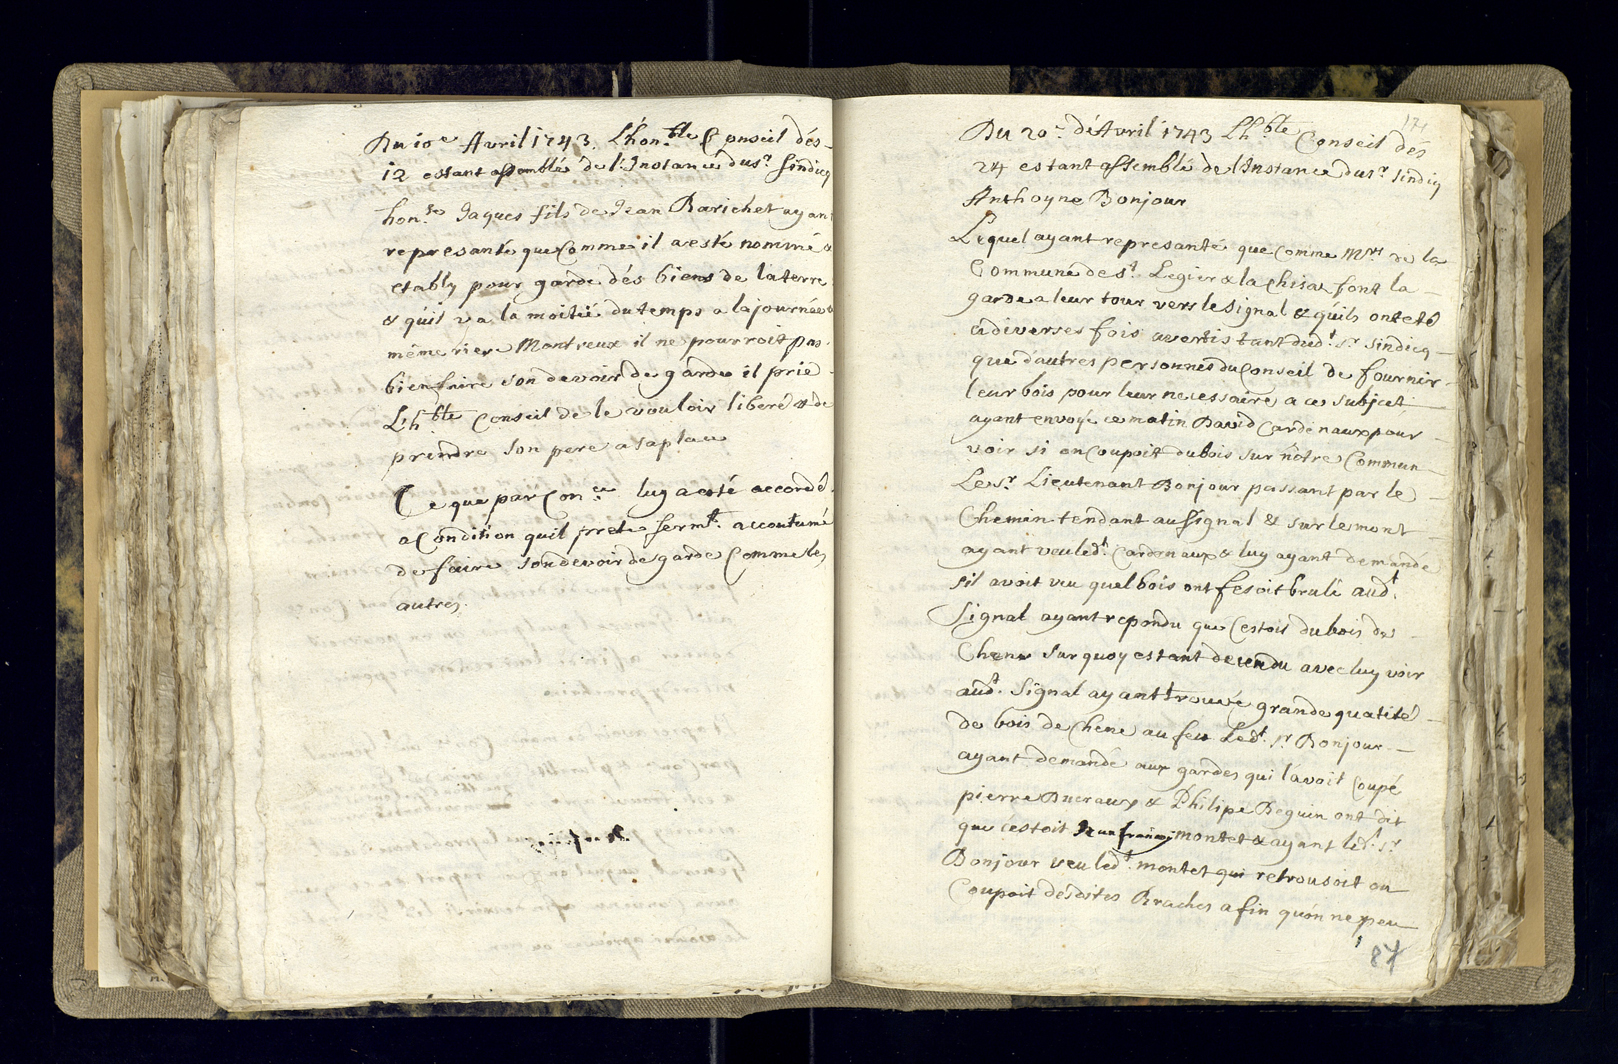 Du 10e Avril 1743. L'hon.ble Conseil dés
12 estant assemblé de l'Instance du sr. sindicq
hon.te Jaques fils de Jean Barichet ayant
represanté que Comme il a esté nommé &
etably pour garde dés biens de la terre
& qu'il va la moitié du temps a la journée &
même riere Montreux il ne pourroit pas
bien faire son devoir de garde il prie
L'h.ble Conseil de le vouloir liberé & de
prindre son pere a sa place
Ce que par Con.ce luy a esté accordé
a Condition quil prete serm.t accoutumé
de faire son devoir de garde Comme les
autres
171
Du 20e. d'Avril 1743 L'h.ble Conseil dés
24 estant assemblé de l'Instance du sr. sindicq
Anthoyne Bonjour
Lequel ayant represanté que comme Mrs de la
Commune de st. Legier & la Chisaz font la
garde a leur tour vers le signal & qu'ils ont eté
a diverses fois avertis tant dud.t sr. sindicq
que d'autres personnes du Conseil de fournir
leur bois pour leur necessaire a ce subject
ayant envoyé ce matin David Cardenaux pour
voir si on Coupoit du bois sur nôtre Commun
Le sr. Lieutenant Bonjour passant par le
Chemin tendant au signal & sur le mont
ayant veu led.t Cardenaux & luy ayant demandé
sil avoit veu quel bois ont fesoit brulé aud.t
Signal ayant repondu que C'estoit du bois de
Chene sur quoy estant decendu avec luy voir
aud.t Signal ayant trouvé grande quatité
de bois de Chene au feu Led.t sr Bonjour
ayant demandé aux gardes qui l'avoit Coupé
pierre Ducraux & Philipe Beguin ont dit
que cestoit Jean françois montet & ayant led.t sr
Bonjour veu led.t montet qui retrousoit ou
Coupoit desdites Braches afin qu'on ne peu
87